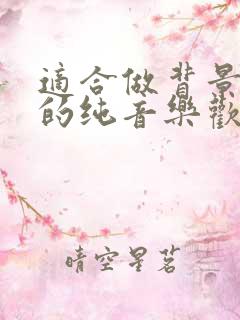 適合做背景
的纯音樂歡
晴空星茗